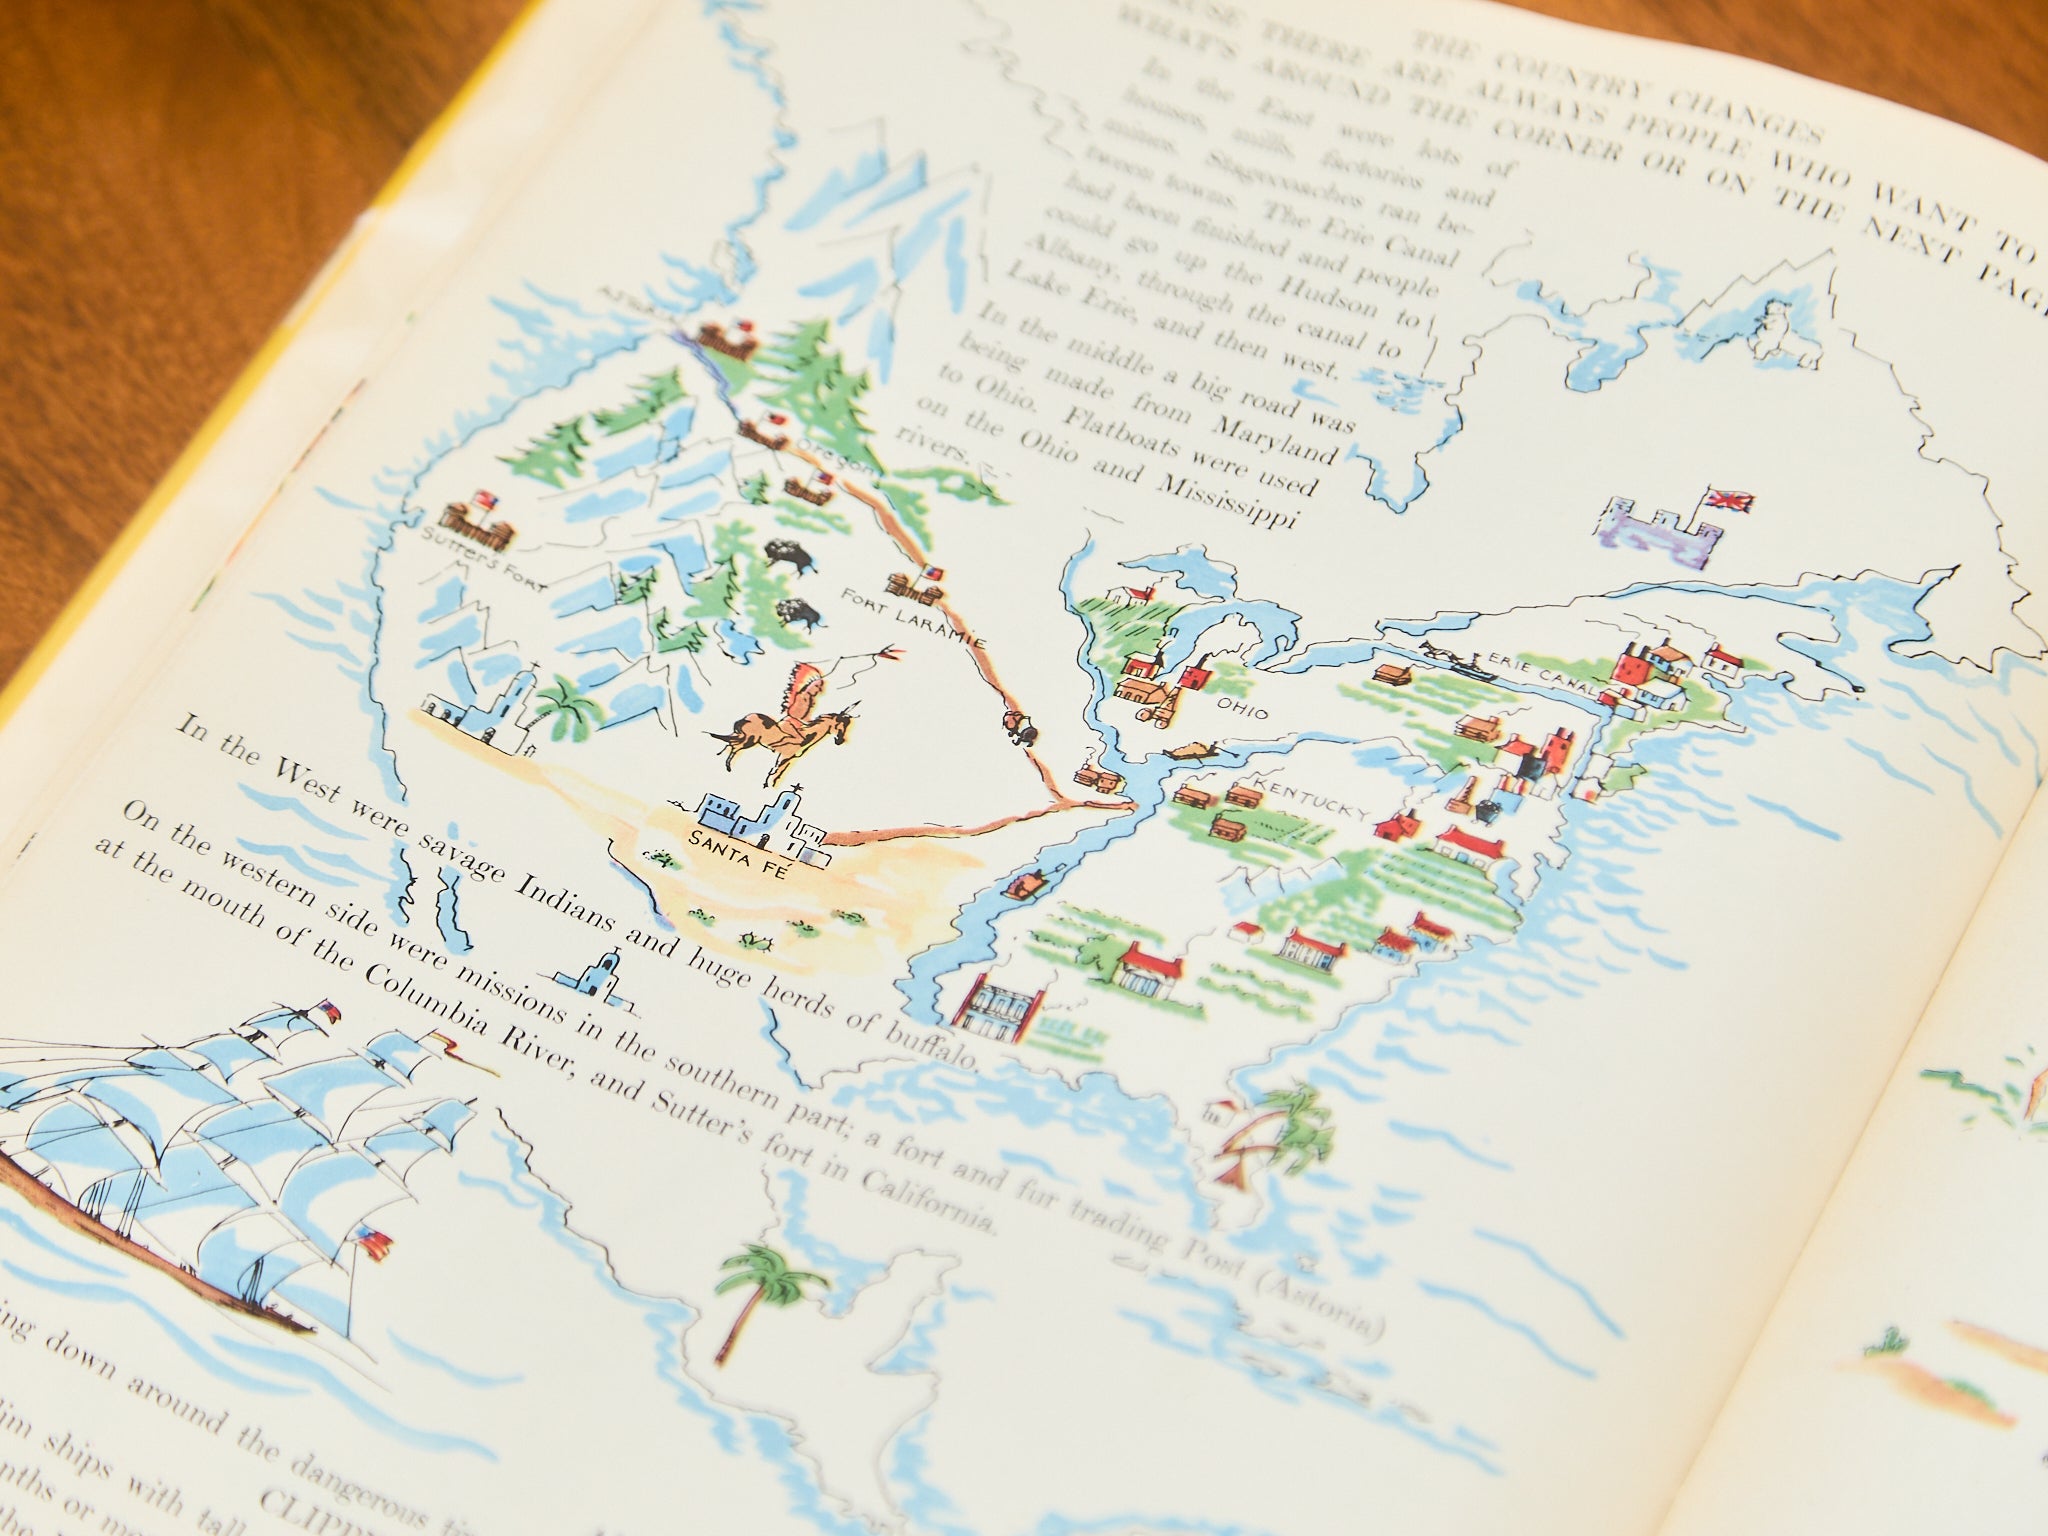 THE COUNTRY CHANGES
THERE ARE ALWAYS PEOPLE WHO WANT TO
WHAT'S AROUND THE CORNER OR ON THE NEXT PAGE
In the East were lots of
houses, mills, factories and
mines. Stagecoaches ran be-
tween towns. The Erie Canal
had been finished and people
could go up the Hudson to
Albany, through the canal to
Lake Erie, and then west.
In the middle a big road was
being made from Maryland
to Ohio. Flatboats were used
on the Ohio and Mississippi
rivers.
ASTORIA
Oregon
SUTTER'S FORT
FORT LARAMIE
ERIE CANAL
OHIO
KENTUCKY
SANTA FÉ
In the West were savage Indians and huge herds of buffalo.
On the western side were missions in the southern part; a fort and fur trading Post (Astoria)
at the mouth of the Columbia River, and Sutter's fort in California.
down around the dangerous
ships with tall
or